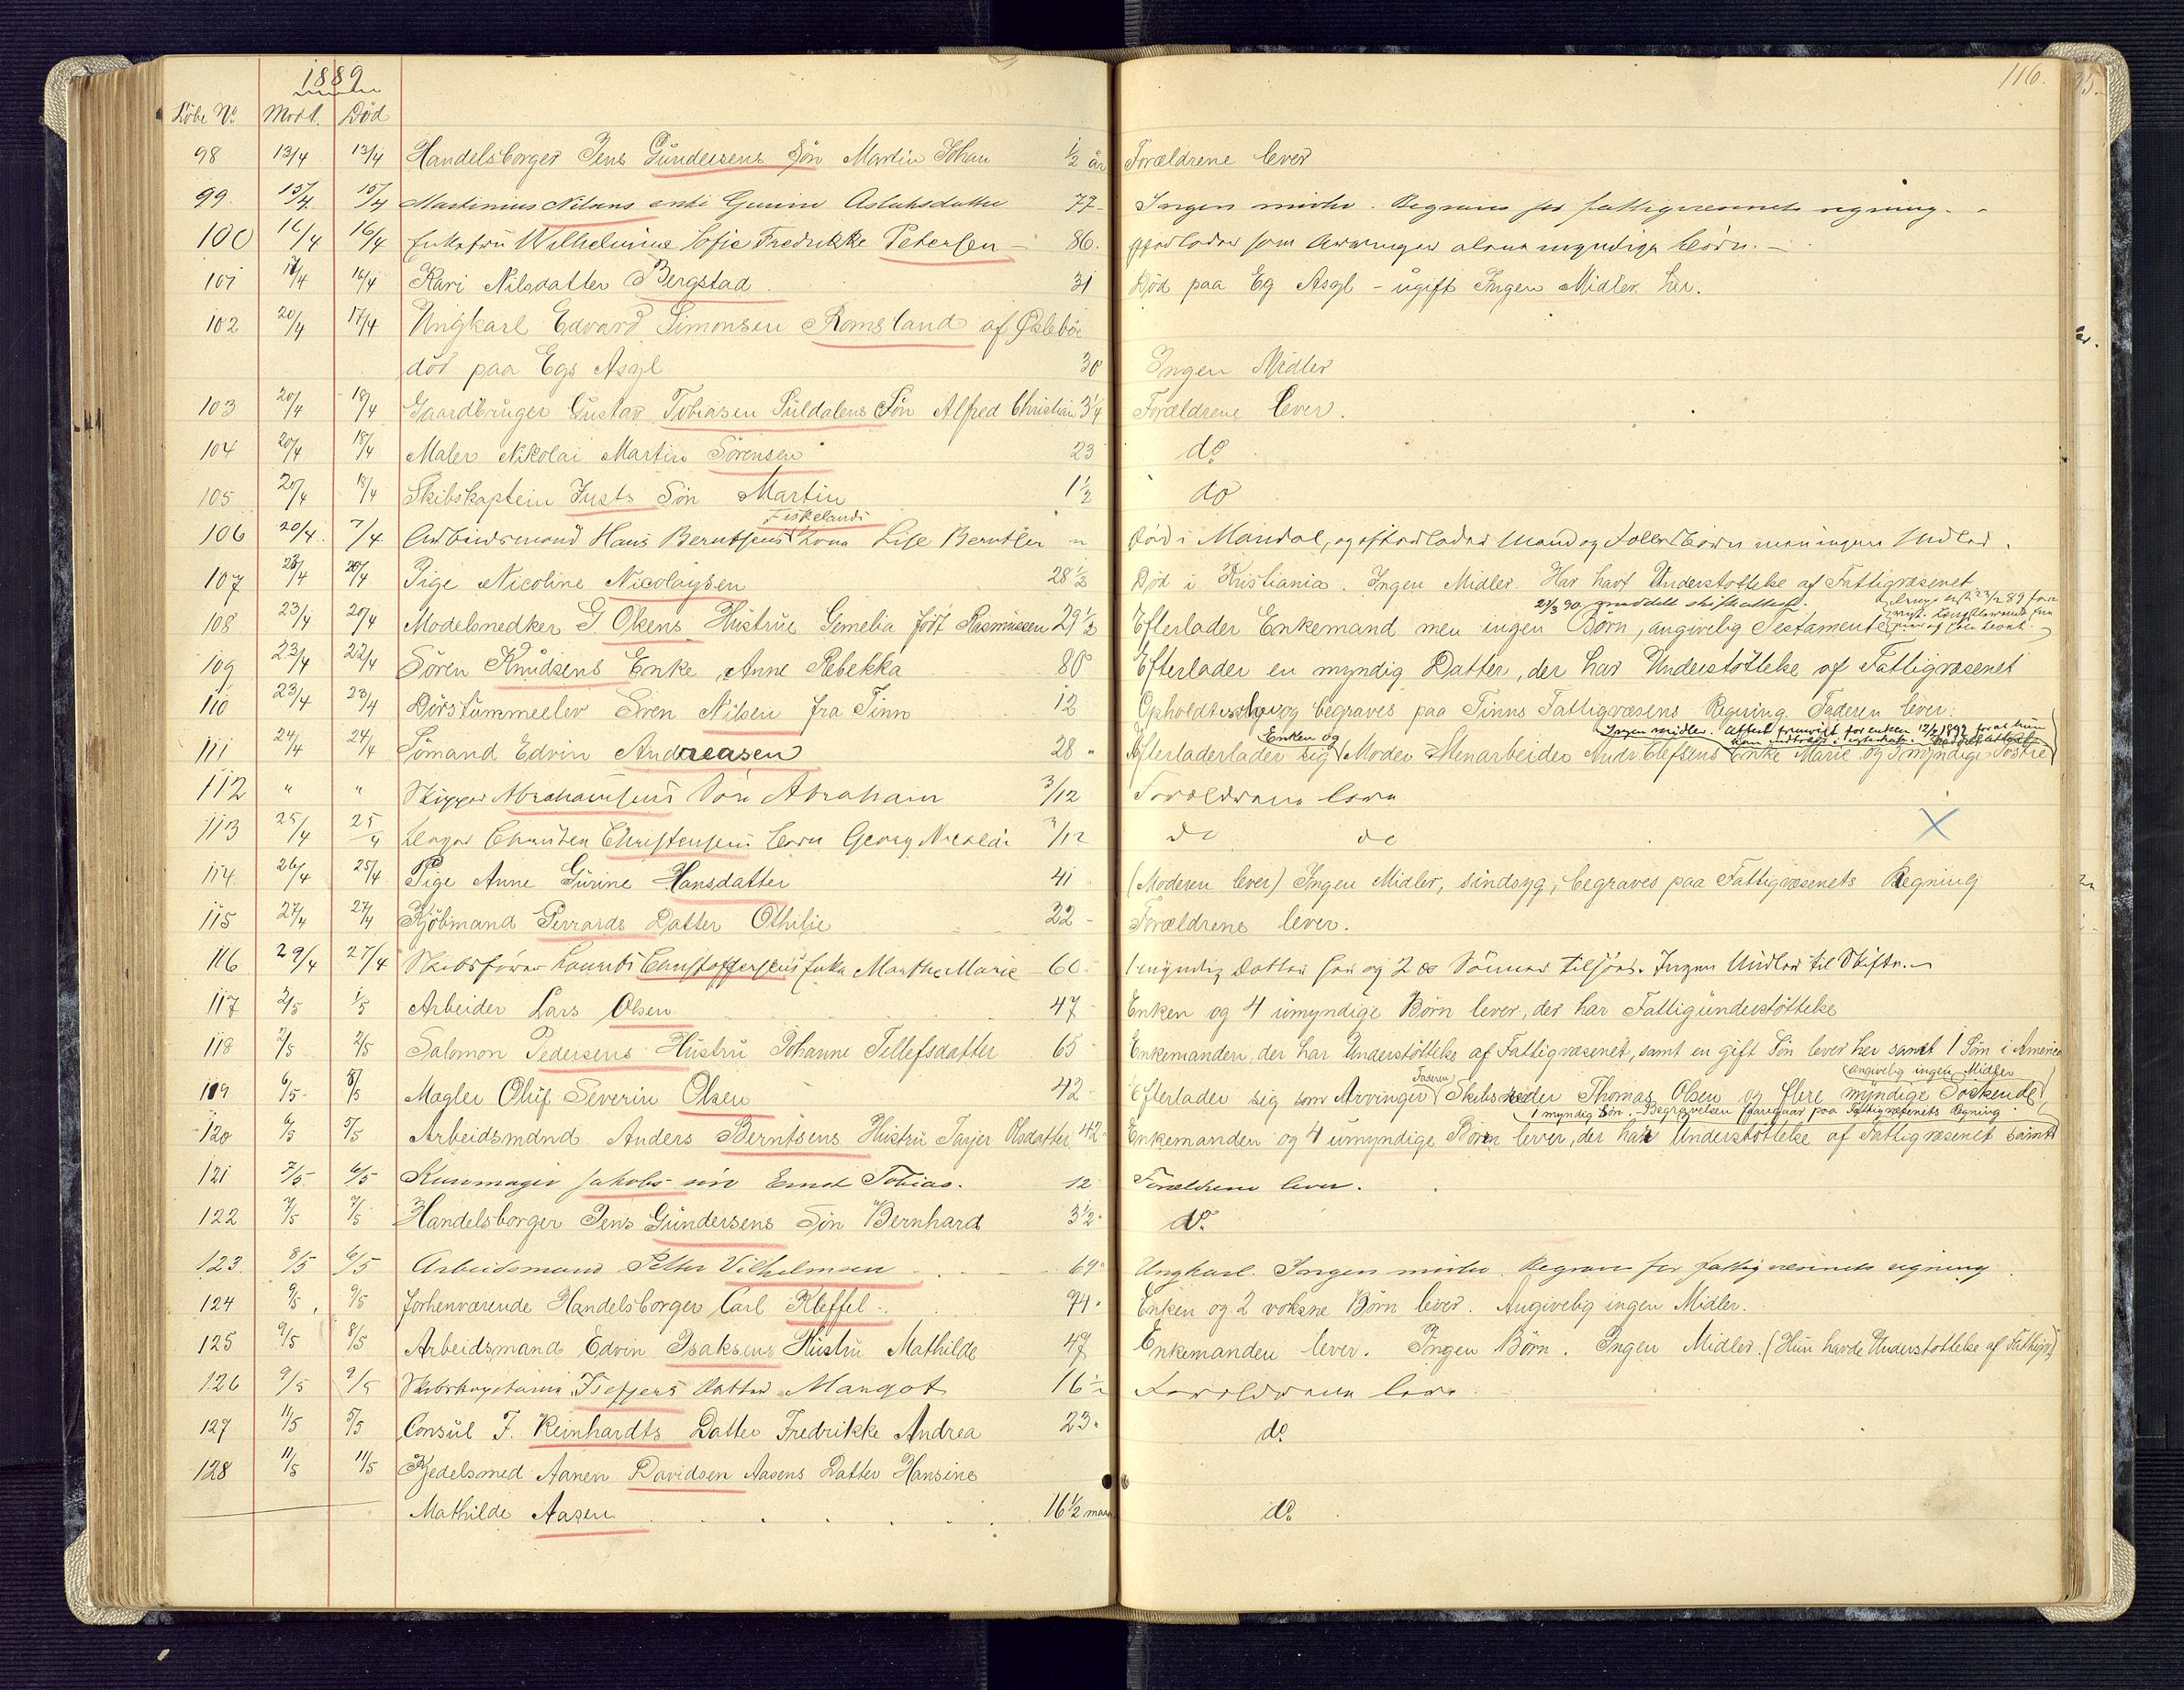 1889
116.
Löbe No. Modt. Död
98 13/4 13/4 Handelsborger Jens Gundersens Søn Martin Johan 1/2 år Forældrene lever
99. 15/4 15/4 Martinius Nilsens enke Gurine Aslaksdatter 77 - Ingen midler. Begraves for fattigvæsenets regning.
100 16/4 16/4 Enkefru Wilhelmine Sofie Fredrikke Petersen - 86. Efterlader som Arvinger alene myndige børn. -
101 17/4 16/4 Kari Nilsdatter Bergstad 31 Död paa Eg Asyl - ugift Ingen Midler her.
102 20/4 17/4 Ungkarl Edvard Simonsen Romsland af Øslebö
död paa Egs Asyl 30 Ingen Midler
103 20/4 18/4 Gaardbruger Gustav Tobiasen Suldalens Sön Alfred Christian 3 1/4 Forældrene lever.
104 20/4 18/4 Maler Nikolai Martin Sörensen 23 do.
105 20/4 18/4 Skibskaptein Justs Sön Martin 1 1/2 do
Fiskelands
106 20/4. 7/4 Arbeidsmand Hans Berntsens Kone Lise Berntsen " död i Mandal, og efterlader Mand og Børn men ingen Midler.
107 23/4 20/4 Pige Nicoline Nicolaysen 28 1/2 Död i Kristiania. Ingen Midler. Har havt Understöttelse af Fattigvæsenet
21/3 90 meddelt skifteattest.
108 23/4 20/4 Modelsnedker G. Olsens Hustrue Gemelia född Rasmussen 29 1/2 Efterlader Enkemand men ingen Börn, angivelig Testamente
109 23/4 22/4 Sören Knudsens Enke, Anne Rebekka 80 Efterlader en myndig Datter, der har Understöttelse af Fattigvæsenet
110 23/4 23/4 Dövstummeelev Sören Nilsen fra Tinn 12 Opholdt sig her og begraves paa Tinns Fattigvæsens Regning. Faderen lever.
Enken og Ingen midler. Attest for enken 12/2 1892 for at hun
111 24/4 24/4 Sömand Edvin Andreasen 28 " Efterladerlader sig Moder Stenarbeider Andr. Elefsens Enke Marie og 3 myndige Söstre
112 " " Skipper Abrahamsens Søn Abraham 3/12 Forældrene leve
113 25/4 25/4 Christen Christensens barn Georg Nicolai 3/12 do do
114. 26/4 25/4 Pige Anne Gurine Hansdatter 41 (Moderen lever) Ingen Midler, sindsyg, begraves paa Fattigvæsenets Regning
115 27/4 27/4 Kjöbmand Gerrards Datter Othilie 22 - Forældrene lever.
116 29/4 27/4 Skibsfører Laurits Christoffersens Enke Marthe Marie - 60 - 1 myndig datter her og 2 do Sønner tilsjøs. Ingen Midler til Skifte. -
117 2/5 1/5 Arbeider Lars Olsen 47 - Enken og 4 umyndige Börn lever, der har Fattigunderstöttelse
118 2/5 2/5 Salomon Pedersens Hustru Johanne Tellefsdatter 65 - Enkemanden, der har Understöttelse af Fattigvæsenet, samt en gift Sön lever her samt 1 Sön i America
Faderen angivelig ingen Midler
119 6/5 5/5 Mægler Oluf Severin Olsen 42 - Efterlader sig som Arvinger Skibsreder Thomas Olsen og flere myndige Söskende
1 myndig Sön. - Begravelsen foregaar paa Fattigvæsenets Regning.
120 6/5 5/5 Arbeidsmand Anders Berntsens Hustru Tarjer Olsdatter 42 - Enkemanden og 4 umyndige Börn lever, der har Understöttelse af Fattigvæsenet samt
121 7/5 6/5 Kurvmager Jakobs sön Ernst Tobias. 12 Forældrene lever.
122 7/5 7/5 Handelsborger Jens Gundersens Sön Bernhard 3 1/2 " do.
123. 8/5 6/5 Arbeidsmand Petter Vilhelmsen 69 " Ungkarl. Ingen midler. Begraves for fattigvæsenets regning.
124 9/5 9/5 forhenværende Handelsborger Carl Kleffel. 74 " Enken og 2 voksne Börn lever. Angivelig ingen Midler.
125 9/5 8/5 Arbeidsmand Edvin Isaksens Hustru Mathilde 47 Enkemanden lever. Ingen Börn. Ingen Midler. (Hun havde Understöttelse af Fattigv.)
126 9/5 9/5 Jseppens datter Margot 16 1/2 Forældrene leve
127 11/5 5/5 Consul F. Reinhardts Datter Fredrikke Andrea 23 " do.
128 11/5 11/5 Kjedelsmed Aanen Davidsen Aasens Datter Hansine
Mathilde Aasen 16 1/2 maan do.